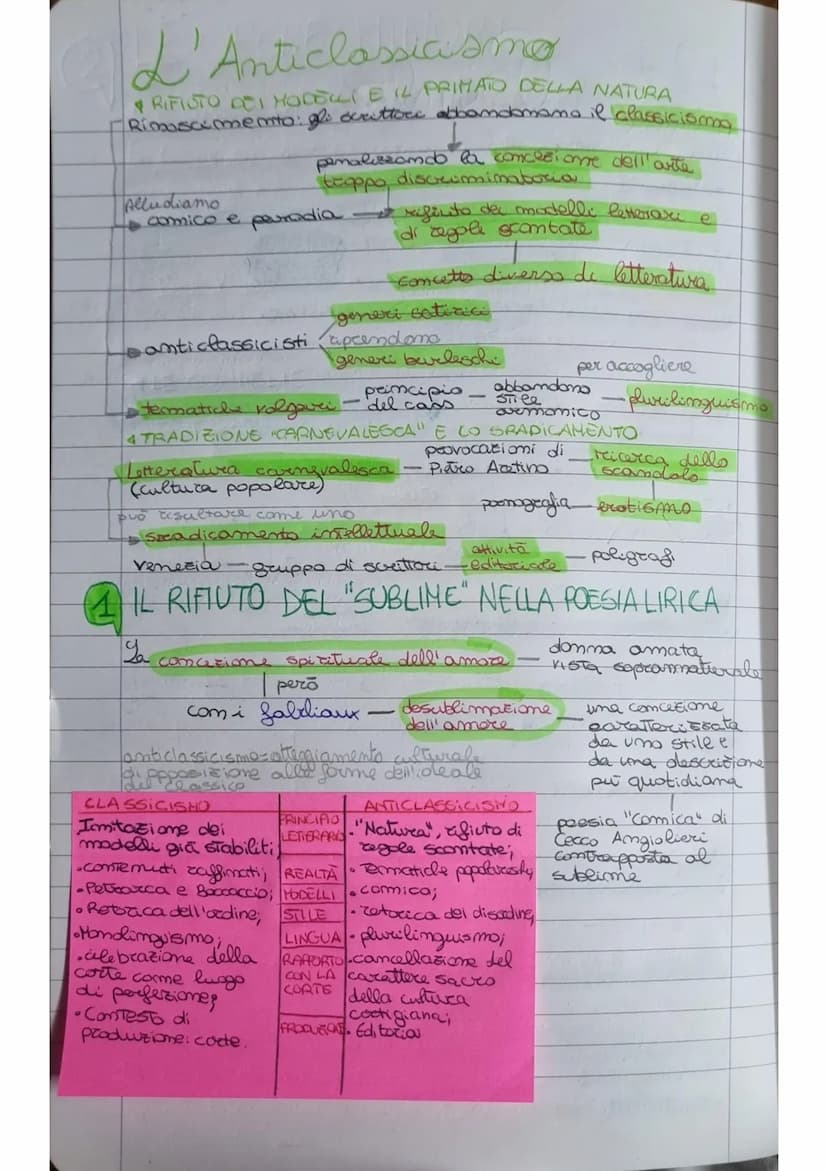 L'Anticlassicismo
RIFIUTO DEI MODELLI E IL PRIMATO DELLA NATURA
Rinascimento: gli scrittori abbandonano il classicismo
penalizzando la concezione dell'arte
troppo discriminatoria
Alludiamo
comico e parodia → rifiuto dei modelli letterari e
di regole scontate
concetto diverso di letteratura
generi satirici
anticlassicisti riprendono
generi burleschi
per accogliere
tematiche volgari - principio del caos - abbandono stile armonico - plurilinguismo
TRADIZIONE "CARNEVALESCA" E LO SRADICAMENTO
Letteratura carnevalesca - provocazioni di Pietro Aretino - ricerca dello scandalo
(cultura popolare)
pornografia - erotismo
può risultare come uno
sradicamento intellettuale
Venezia - gruppo di scrittori - attività editoriale - poligrafi
1 IL RIFIUTO DEL "SUBLIME" NELLA POESIA LIRICA
La concezione spirituale dell'amore - donna amata
vista soprannaturale
però
con i fabliaux - desublimazione dell'amore - una concezione
caratterizzata
da uno stile e
da una descrizione
più quotidiana
poesia "comica" di
Cecco Angiolieri
contrapposta al
sublime
anticlassicismo = atteggiamento culturale
di opposizione alle forme dell'ideale
del classico
CLASSICISMO
Imitazione dei
modelli già stabiliti;
• contenuti raffinati;
• Petrarca e Boccaccio;
• Retorica dell'ordine;
• Monolinguismo;
• celebrazione della
corte come luogo
di perfezione;
• Contesto di
produzione: corte.
PRINCIPIO
LETTERARIO
REALTÀ
MODELLI
STILE
LINGUA
RAPPORTO
CON LA
CORTE
PRODUZIONE
ANTICLASSICISMO
• "Natura", rifiuto di
regole scontate;
• Tematiche
• comica;
• retorica del disordine;
• plurilinguismo;
• cancellazione del
carattere sacro
della cultura
cortigiana;
• Editoria